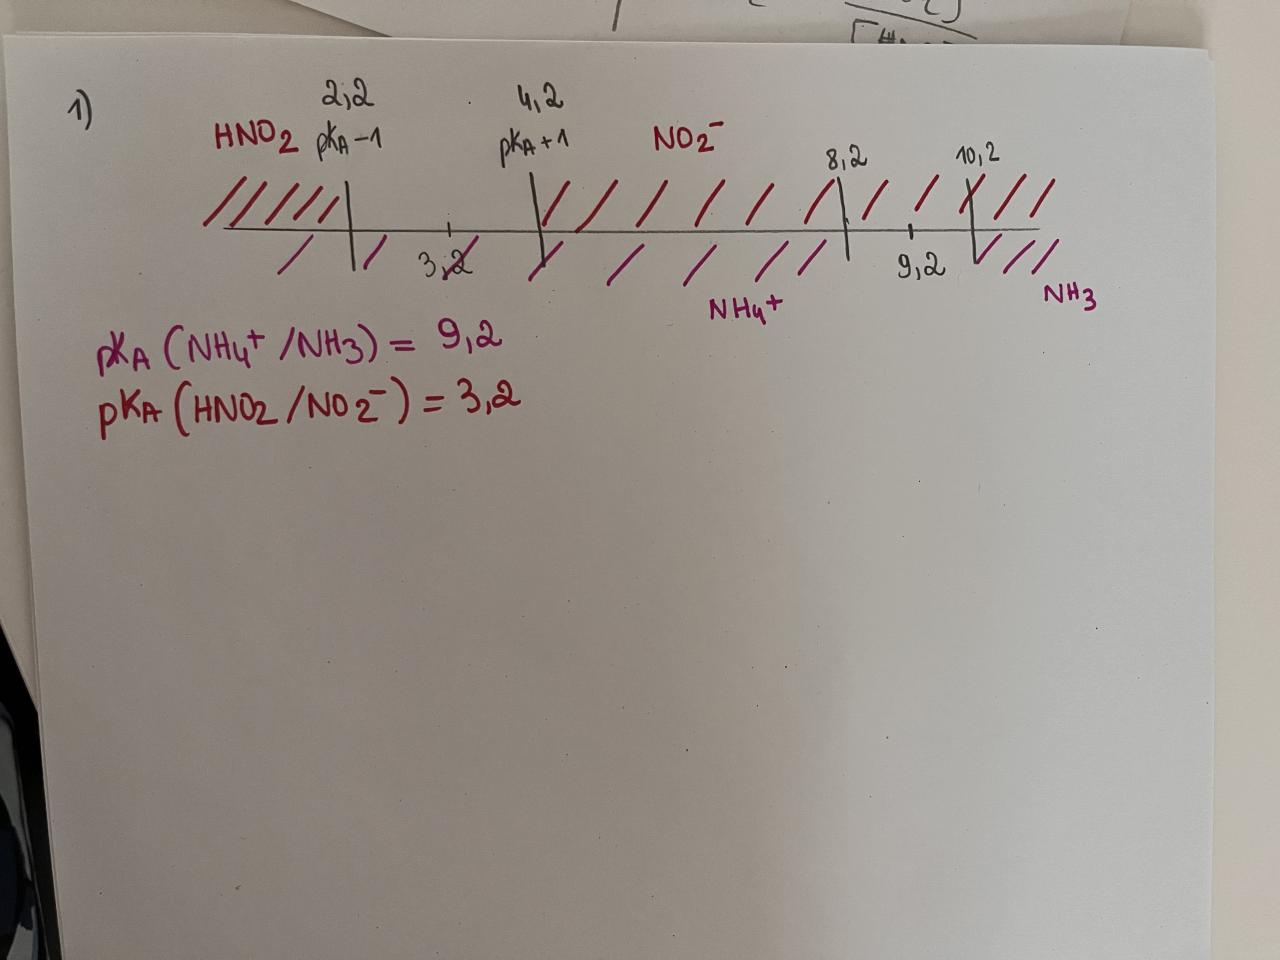 1)
2,2 4,2
HNO2 pKA-1 pKA+1 NO2⁻ 8,2 10,2
3,2 9,2
NH4⁺ NH3
pKA (NH4⁺/NH3) = 9,2
pKA (HNO2/NO2⁻) = 3,2